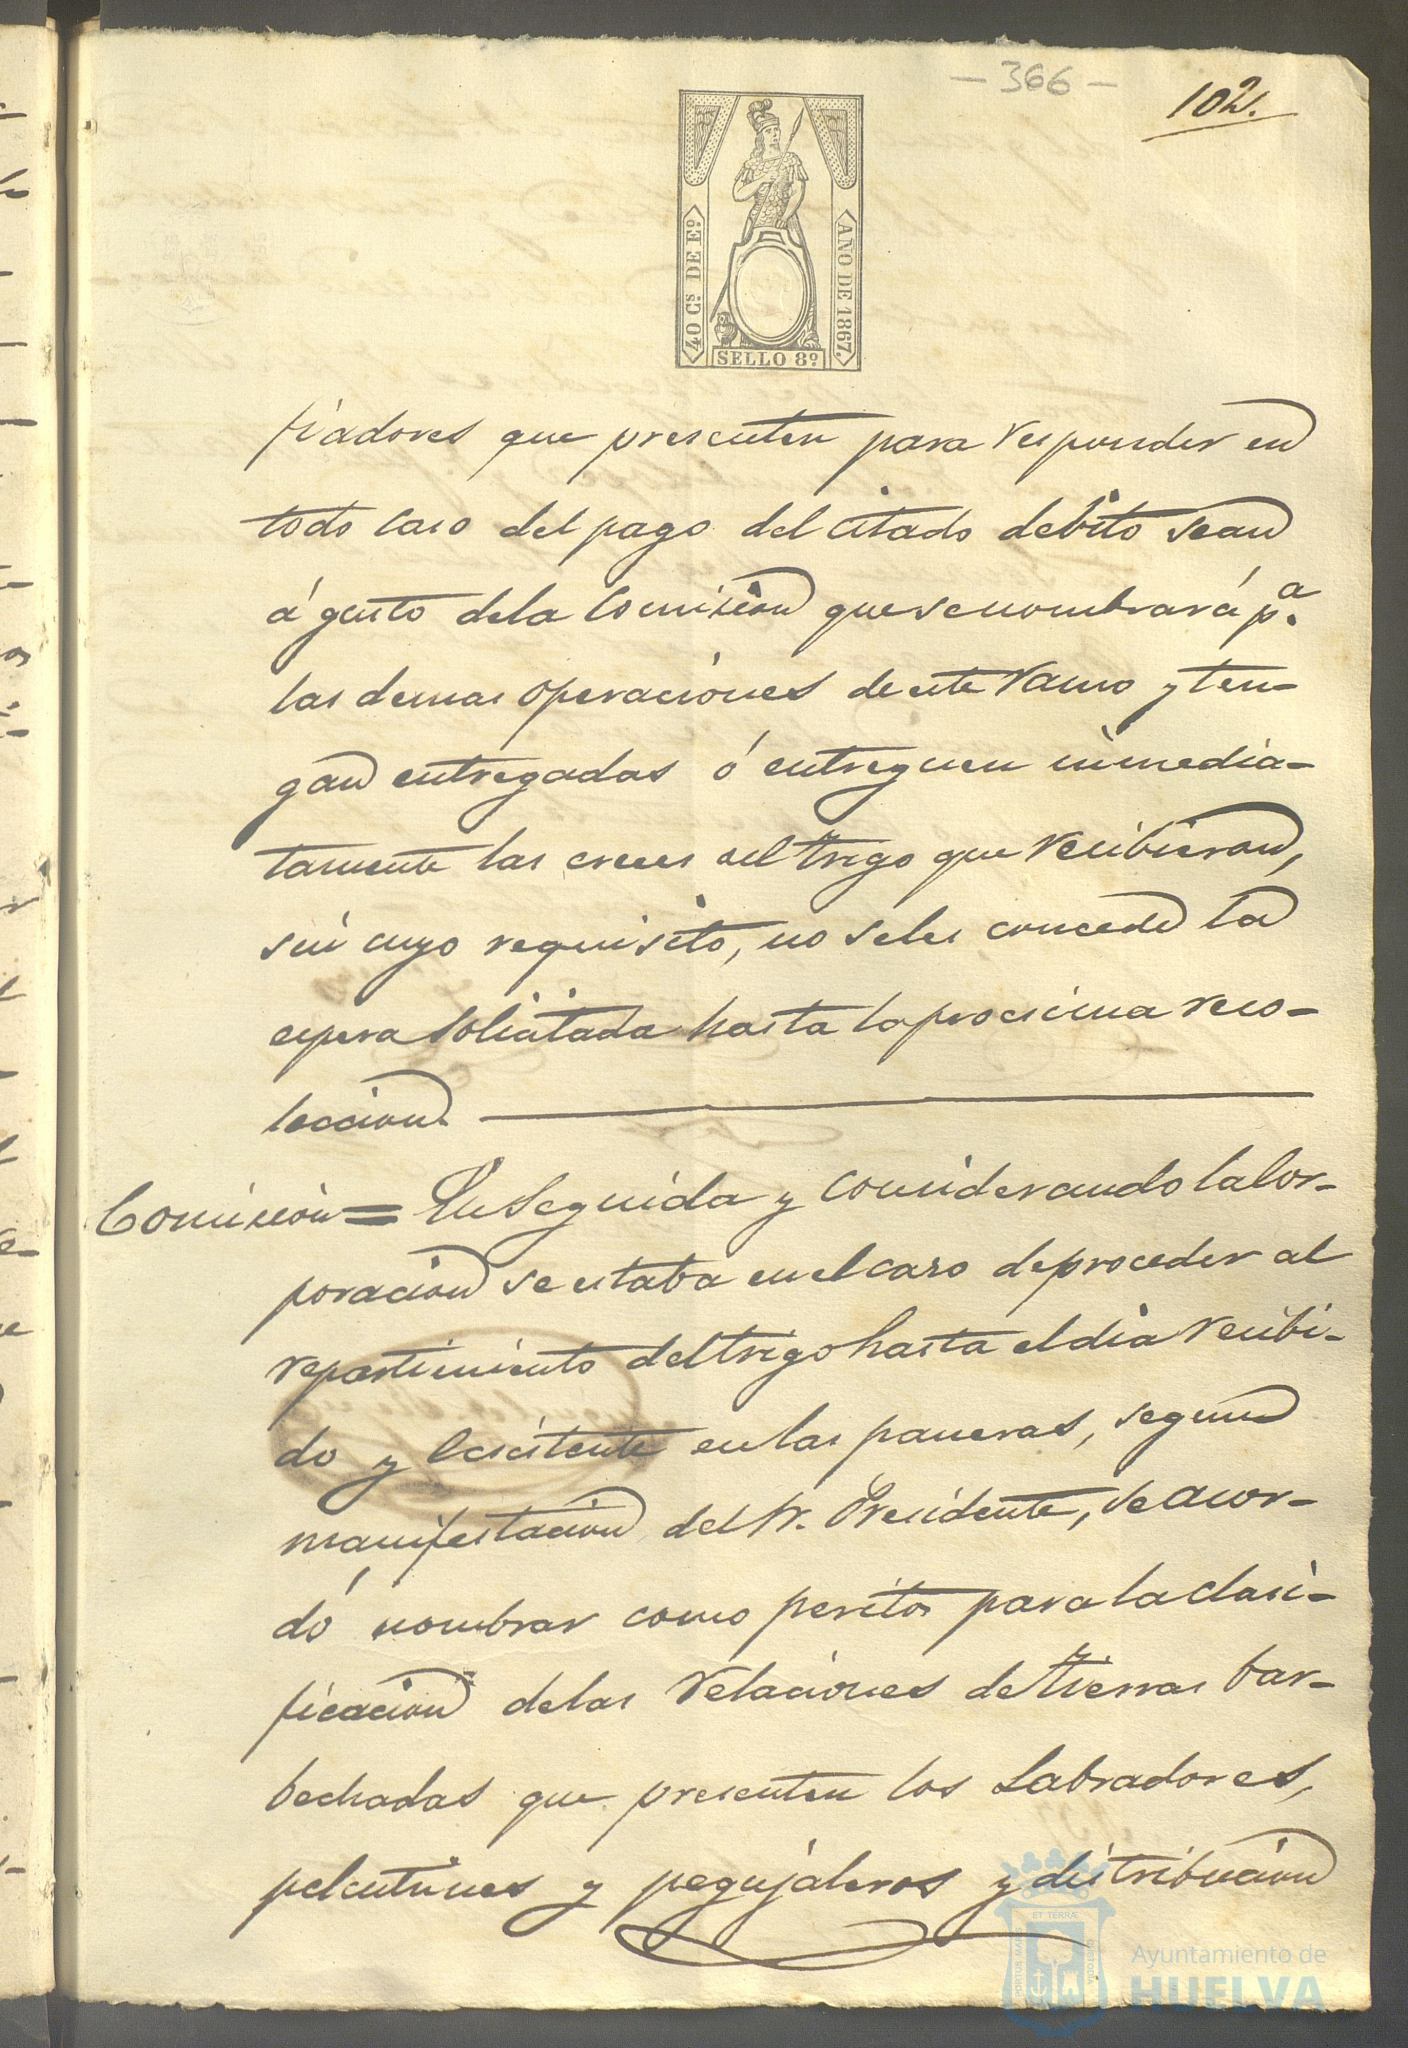 - 366 -
102.
40 Cs DE Eº
AÑO DE 1867.
SELLO 8º
fiadores que presenten para responder en
todo caso del pago del citado debito sean
á gusto de la Comision que se nombrará pa.
las demas operaciones de este ramo y ten-
gan entregadas ó entreguen inmedia-
tamente las creces del trigo que recibieron,
sin cuyo requisito, no se les concede la
espera solicitada hasta la procsima reco-
leccion.
Comision = En seguida y considerando la Cor-
poracion se estaba en el caso de proceder al
repartimiento del trigo hasta el dia recibi-
do y ecsistente en las paneras, segun
manifestacion del Sr. Presidente, se acor-
dó nombrar como peritos para la clasi-
ficacion de las relaciones de tierras bar-
bechadas que presenten los Labradores,
pelentrines y pegujaleros y distribucion
PORTUS MARIS
ET TERRÆ
CUSTODIA
Ayuntamiento de
HUELVA